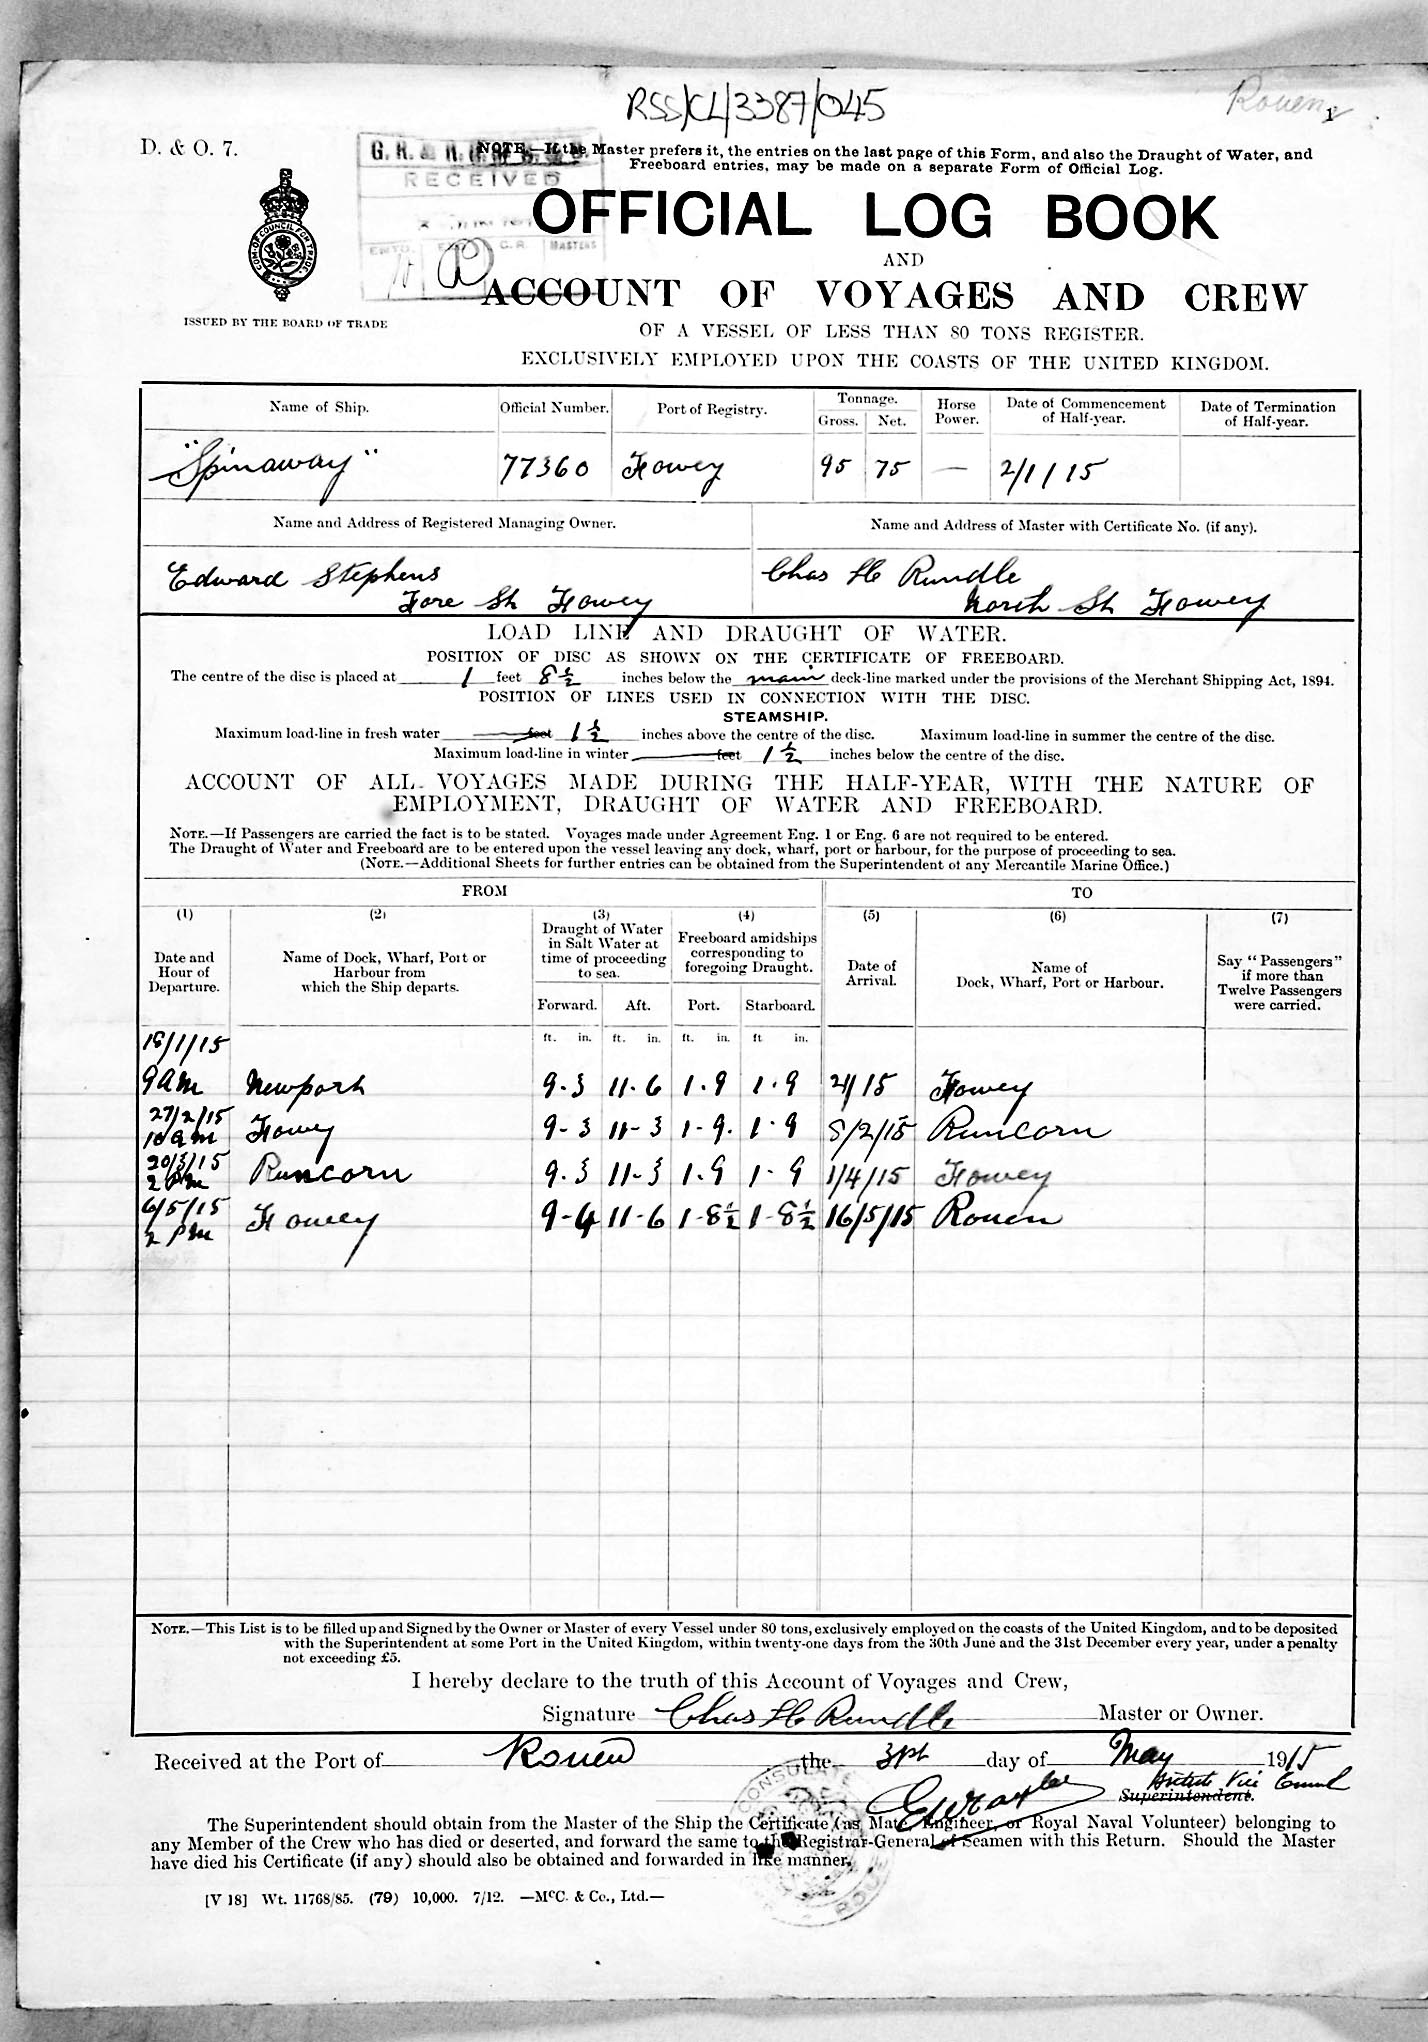 RSS/CL/3387/045
Rouen
1
D. & O. 7.
RECEIVED
NOTE.—If the Master prefers it, the entries on the last page of this Form, and also the Draught of Water, and
Freeboard entries, may be made on a separate Form of Official Log.
OFFICIAL LOG BOOK
AND
ACCOUNT OF VOYAGES AND CREW
ISSUED BY THE BOARD OF TRADE
OF A VESSEL OF LESS THAN 80 TONS REGISTER.
EXCLUSIVELY EMPLOYED UPON THE COASTS OF THE UNITED KINGDOM.
Name of Ship. Official Number. Port of Registry. Tonnage. Gross. Net. Horse Power. Date of Commencement of Half-year. Date of Termination of Half-year.
"Spinaway" 77360 Fowey 95 75 — 2/1/15
Name and Address of Registered Managing Owner. Name and Address of Master with Certificate No. (if any).
Edward Stephens Chas H Rundle
Fore St Fowey North St Fowey
LOAD LINE AND DRAUGHT OF WATER.
POSITION OF DISC AS SHOWN ON THE CERTIFICATE OF FREEBOARD.
The centre of the disc is placed at 1 feet 8 1/2 inches below the main deck-line marked under the provisions of the Merchant Shipping Act, 1894.
POSITION OF LINES USED IN CONNECTION WITH THE DISC.
STEAMSHIP.
Maximum load-line in fresh water feet 1 1/2 inches above the centre of the disc. Maximum load-line in summer the centre of the disc.
Maximum load-line in winter feet 1 1/2 inches below the centre of the disc.
ACCOUNT OF ALL VOYAGES MADE DURING THE HALF-YEAR, WITH THE NATURE OF
EMPLOYMENT, DRAUGHT OF WATER AND FREEBOARD.
NOTE.—If Passengers are carried the fact is to be stated. Voyages made under Agreement Eng. 1 or Eng. 6 are not required to be entered.
The Draught of Water and Freeboard are to be entered upon the vessel leaving any dock, wharf, port or harbour, for the purpose of proceeding to sea.
(NOTE.—Additional Sheets for further entries can be obtained from the Superintendent of any Mercantile Marine Office.)
FROM TO
(1) (2) (3) (4) (5) (6) (7)
Date and Hour of Departure. Name of Dock, Wharf, Port or Harbour from which the Ship departs. Draught of Water in Salt Water at time of proceeding to sea. Freeboard amidships corresponding to foregoing Draught. Date of Arrival. Name of Dock, Wharf, Port or Harbour. Say "Passengers" if more than Twelve Passengers were carried.
Forward. Aft. Port. Starboard.
ft. in. ft. in. ft. in. ft in.
18/1/15
9 am Newport 9.3 11.6 1.9 1.9 Fowey
27/2/15
10 am Fowey 9-3 11-3 1-9. 1.9 8/2/15 Runcorn
20/3/15
2 Pm Runcorn 9.3 11-3 1.9 1.9 1/4/15 Fowey
6/5/15
2 Pm Fowey 9-4 11-6 1-8 1/2 1-8 1/2 16/5/15 Rouen
NOTE.—This List is to be filled up and Signed by the Owner or Master of every Vessel under 80 tons, exclusively employed on the coasts of the United Kingdom, and to be deposited
with the Superintendent at some Port in the United Kingdom, within twenty-one days from the 30th June and the 31st December every year, under a penalty
not exceeding £5.
I hereby declare to the truth of this Account of Voyages and Crew,
Signature Chas H Rundle Master or Owner.
Received at the Port of Rouen the 31st day of May 1915
British Vice Consul
Superintendent.
The Superintendent should obtain from the Master of the Ship the Certificate (as Mate, Engineer, or Royal Naval Volunteer) belonging to
any Member of the Crew who has died or deserted, and forward the same to the Registrar-General of Seamen with this Return. Should the Master
have died his Certificate (if any) should also be obtained and forwarded in like manner.
[V 18] Wt. 11768/85. (79) 10,000. 7/12. —McC. & Co., Ltd.—